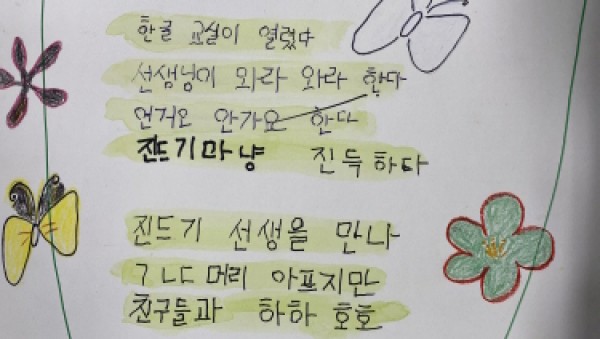 한글 교실이 열렸다
선생님이 와라 와라 한다
안가요 한다
진드기마냥 진득하다
진드기 선생을 만나
ㄱㄴㄷ 머리 아프지만
친구들과 하하 호호